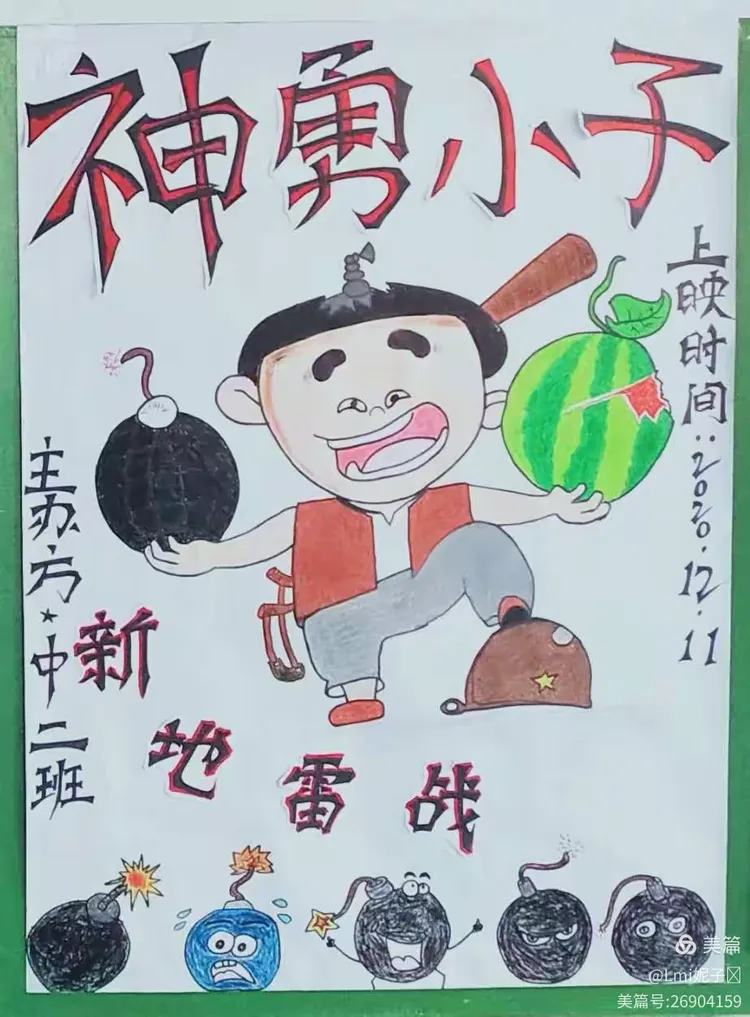 神勇小子
上映时间:2020.12.11
主办方★中二班
新地雷战
美篇
@Lmj妮子
美篇号:26904159